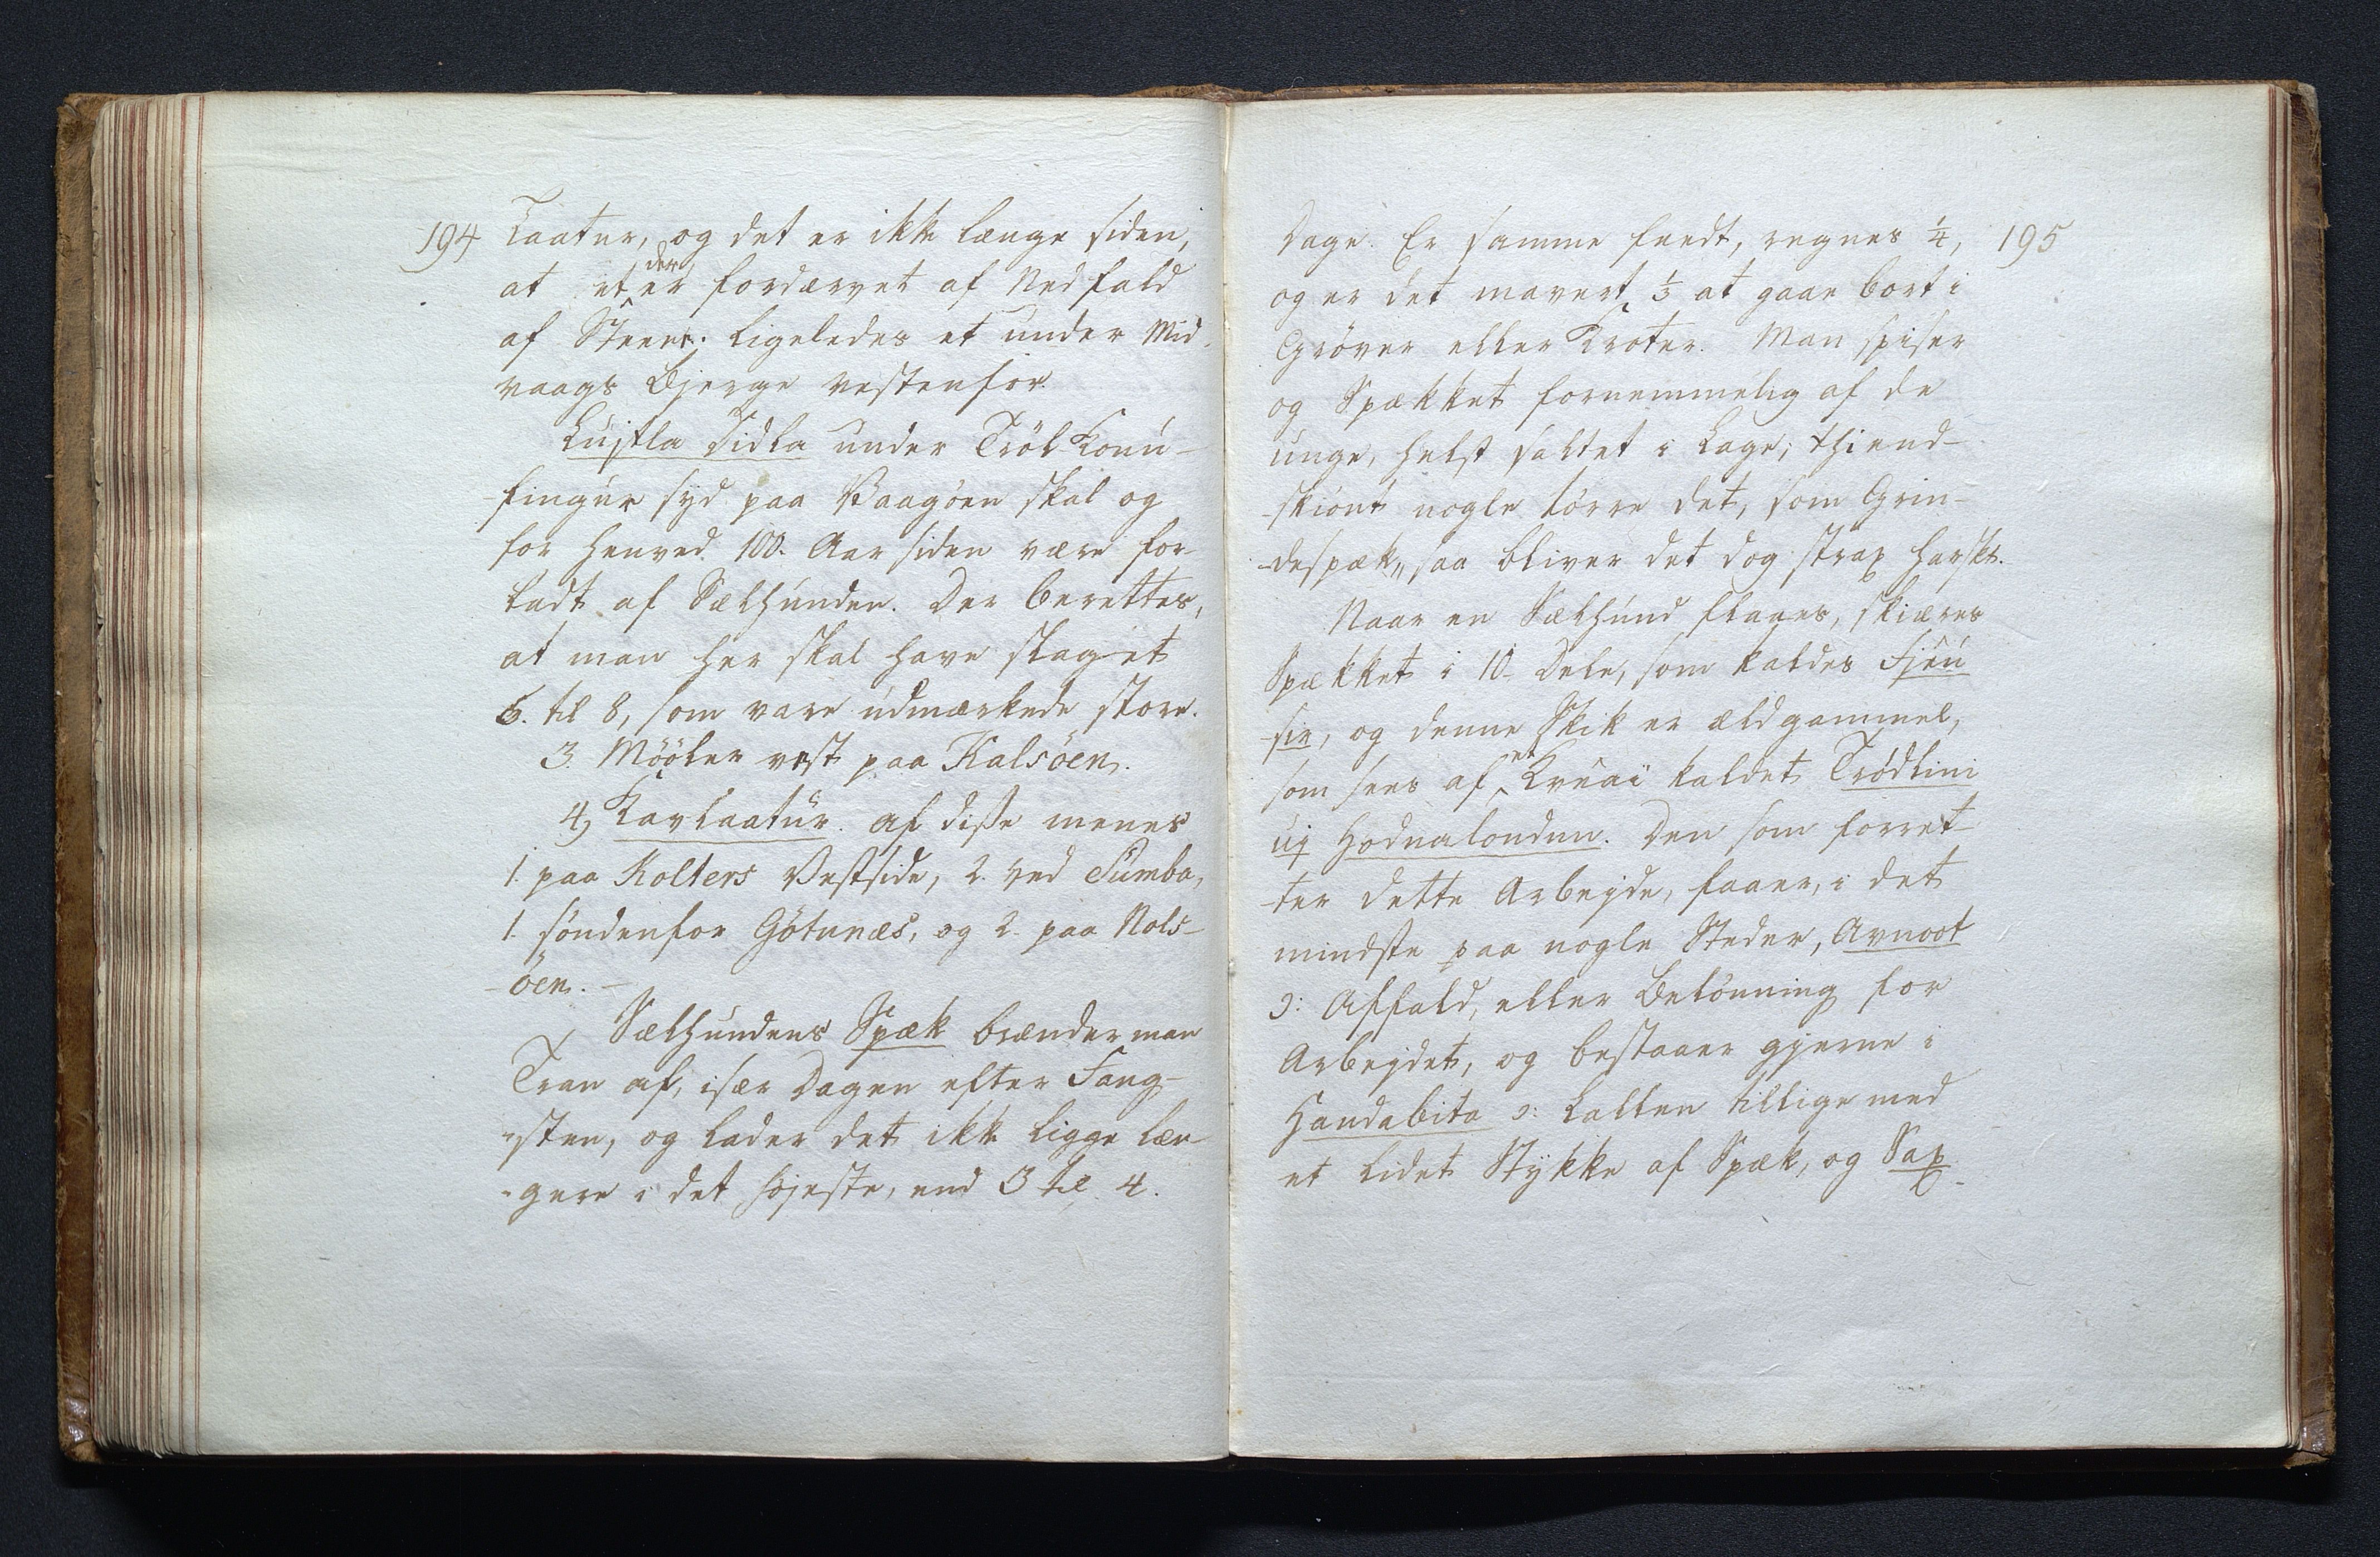 194 Laatur, og det er ikke længe siden,
at et der er fordærvet af Nedfald
af Steene. Ligeledes et under Mid-
vaags Bjerge vestenfor.
Lujtla Didla under Tröl Konu-
-fingur syd paa Vaagöen skal og
for henved 100. Aar siden være for-
ladt af Sælhunden. Der berettes,
at man her skal have slaget
6. til 8, som vare udmærkede store.
3. Mööler vest paa Kalsöen.
4) Kavlaatur. Af disse menes
1. paa Kolters Vestside, 2. ved Sumbø,
1. søndenfor Götunæs, og 2. paa Nols-
-öen. -
Sælhundens Spæk brænder man
Tran af, især Dagen efter Fang-
-sten, og lader det ikke ligge læn-
-gere i det højeste, end 3 til 4.
Dage. Er samme feedt, regnes ¼, 195
og er det mavert, ⅓ at gaae bort i
Gröver eller Kroter. Man spiser
og Spækket fornemmelig af de
unge, helst saltet i Lage; thi end-
-skiönt nogle törre det, som Grin-
-despæk, saa bliver det dog strax harskt.
Naar en Sælhund flaaes, skiæres
Spækket i 10. Dele, som kaldes Fjeu
-sir, og denne Skik er ældgammel,
som sees af et Kveai kaldet Trödlini
up Hodnalondun. Den som forret-
-ter dette Arbejde, faaer, i det
mindste paa nogle Steder, Avnoot
ɔ: Affald, eller Belönning for
Arbejdet, og bestaaer gjerne i
Handabita ɔ: Lallen tillige med
et lidet Stykke af Spæk, og Sax-